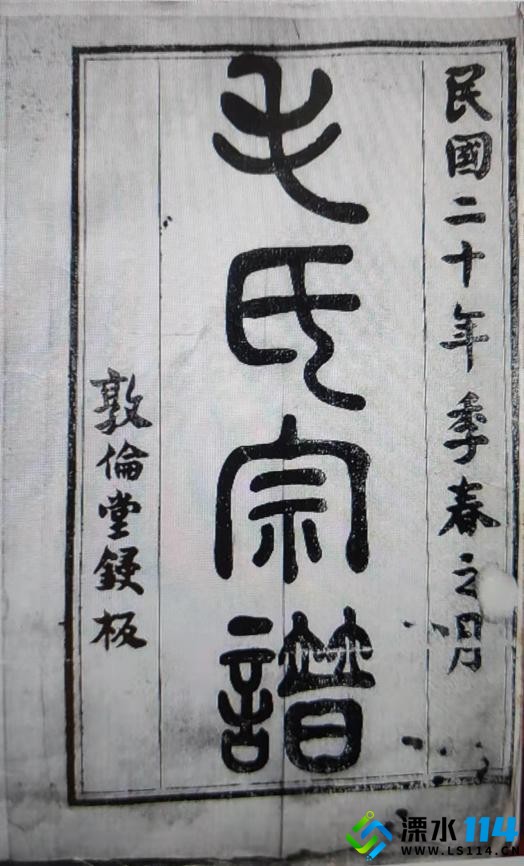 民國二十年季春之月
毛氏宗譜
敦倫堂鋟板
溧水114
WWW.LS114.CN